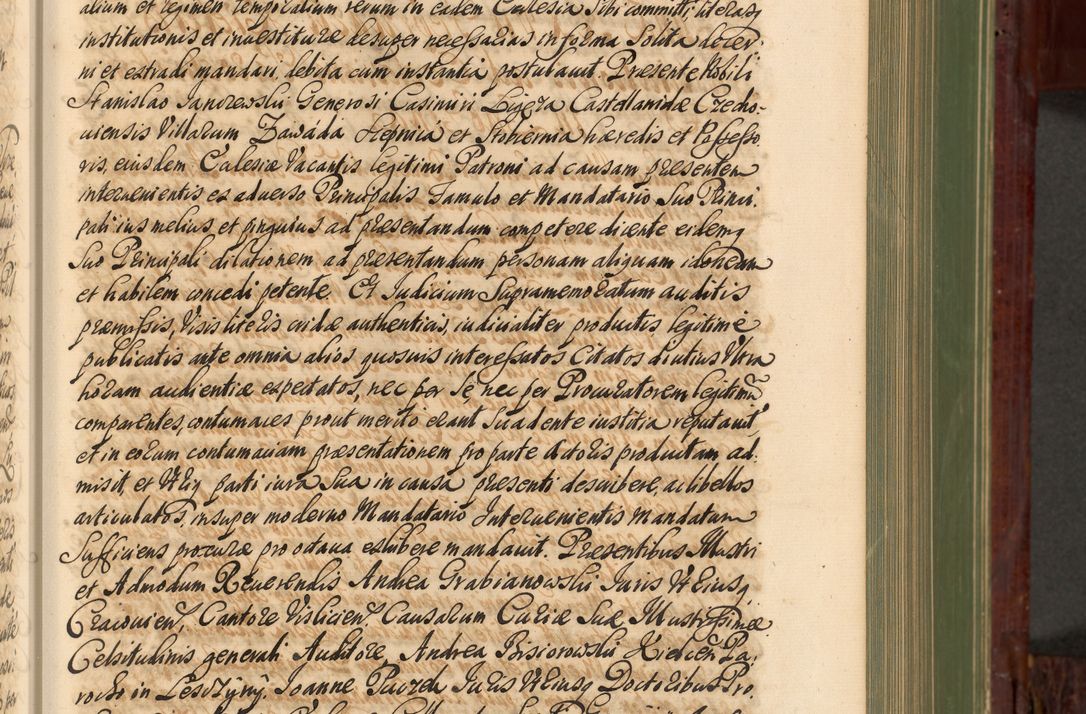 alium et regimen temporalium rerum in eadem Ecclesia Sibi committi, literasq
institutionis et inuestituræ desuper necessarias in forma Solita decer-
ni et extradi mandari, debita cum instantia postulauit. Præsente Nobili
Stanislao Janczewski Generosi Casimiri Castellanidæ Czecho-
uiensis Villarum Zawáda Stepnica et Stobiernia hæredis et Possesso
ris, eiusdem Ecclesiæ Vacantis legitimi Patroni ad causam præsentem
interuenientis ex aduerso Principalis Famulo et Mandatario Suo Princi
pali ius melius, et pinguius ad præsentandum competere dicente eidemq
Suo Principali dilationem ad præsentandum personam aliquam idoneam
et habilem concedi petente. Et Judicium Supramemoratum auditis
præmissis, Visis literis cridæ authenticis, iudicialiter productis legitime
publicatis ante omnia alios quosuis interessatos Citatos diutius Vltra
horam audientiæ expectatos, nec per Se, nec per Procuratorem legitimũ
comparentes, contumaces prout merito erant Suadente iustitia reputauit,
et in eorum contumaciam præsentationem pro parte Actoris productam ad-
misit, et Vtriq parti iura Sua in causa præsenti describere, ac libellos
articulatos, insuper moderno Mandatario Interuenientis Mandatum
Sufficiens procuræ pro octaua exhibere mandauit. Præsentibus Illustri
et Admodum Reuerendis Andrea Grabianowski Juris Vtriusq
Cracouien, Cantore Vislicien, Causarum Curiæ Suæ Illustrissimæ
Celsitudinis generali Auditore, Andrea Pisiorowski Kielcen Pa-
rocho in Lesczyny, Joanne Paczek Juris Vtriusq Doctoribus Pro-